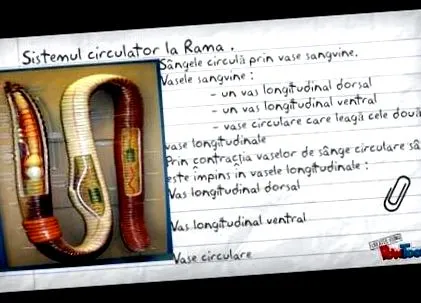 Sistemul circulator la Rama .
Sângele circulă prin vase sangvine.
Vasele sangvine :
- un vas longitudinal dorsal
- un vas longitudinal ventral
- vase circulare care leagă cele două
vase longitudinale
Prin contracția vaselor de sânge circulare
este împins în vasele longitudinale :
Vas longitudinal dorsal
Vas longitudinal ventral
Vase circulare